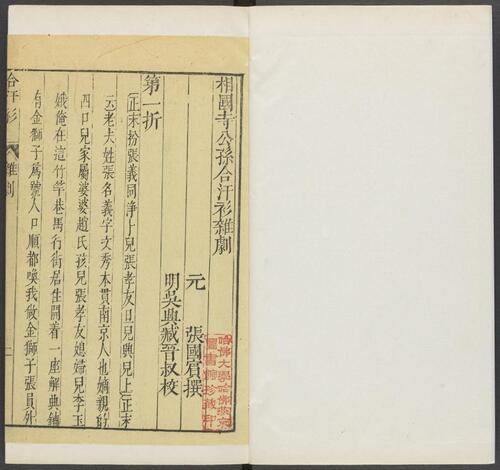 相國寺公孫合汗衫雜劇
元 張國賓撰
明吳興臧晉叔校
第一折
(正末扮張義同淨卜兒張孝友旦兒興兒上)(正末
云)老夫姓張名義字文秀本貫南京人也嫡親的
四口兒家屬婆婆趙氏孩兒張孝友媳婦兒李玉
娥俺在這竹竿巷馬行街居住開着一座解典鋪
有金獅子爲號人口順都喚我做金獅子張員外
合汗衫 雜劇 一
哈佛大學哈佛燕京
圖書館珍藏印